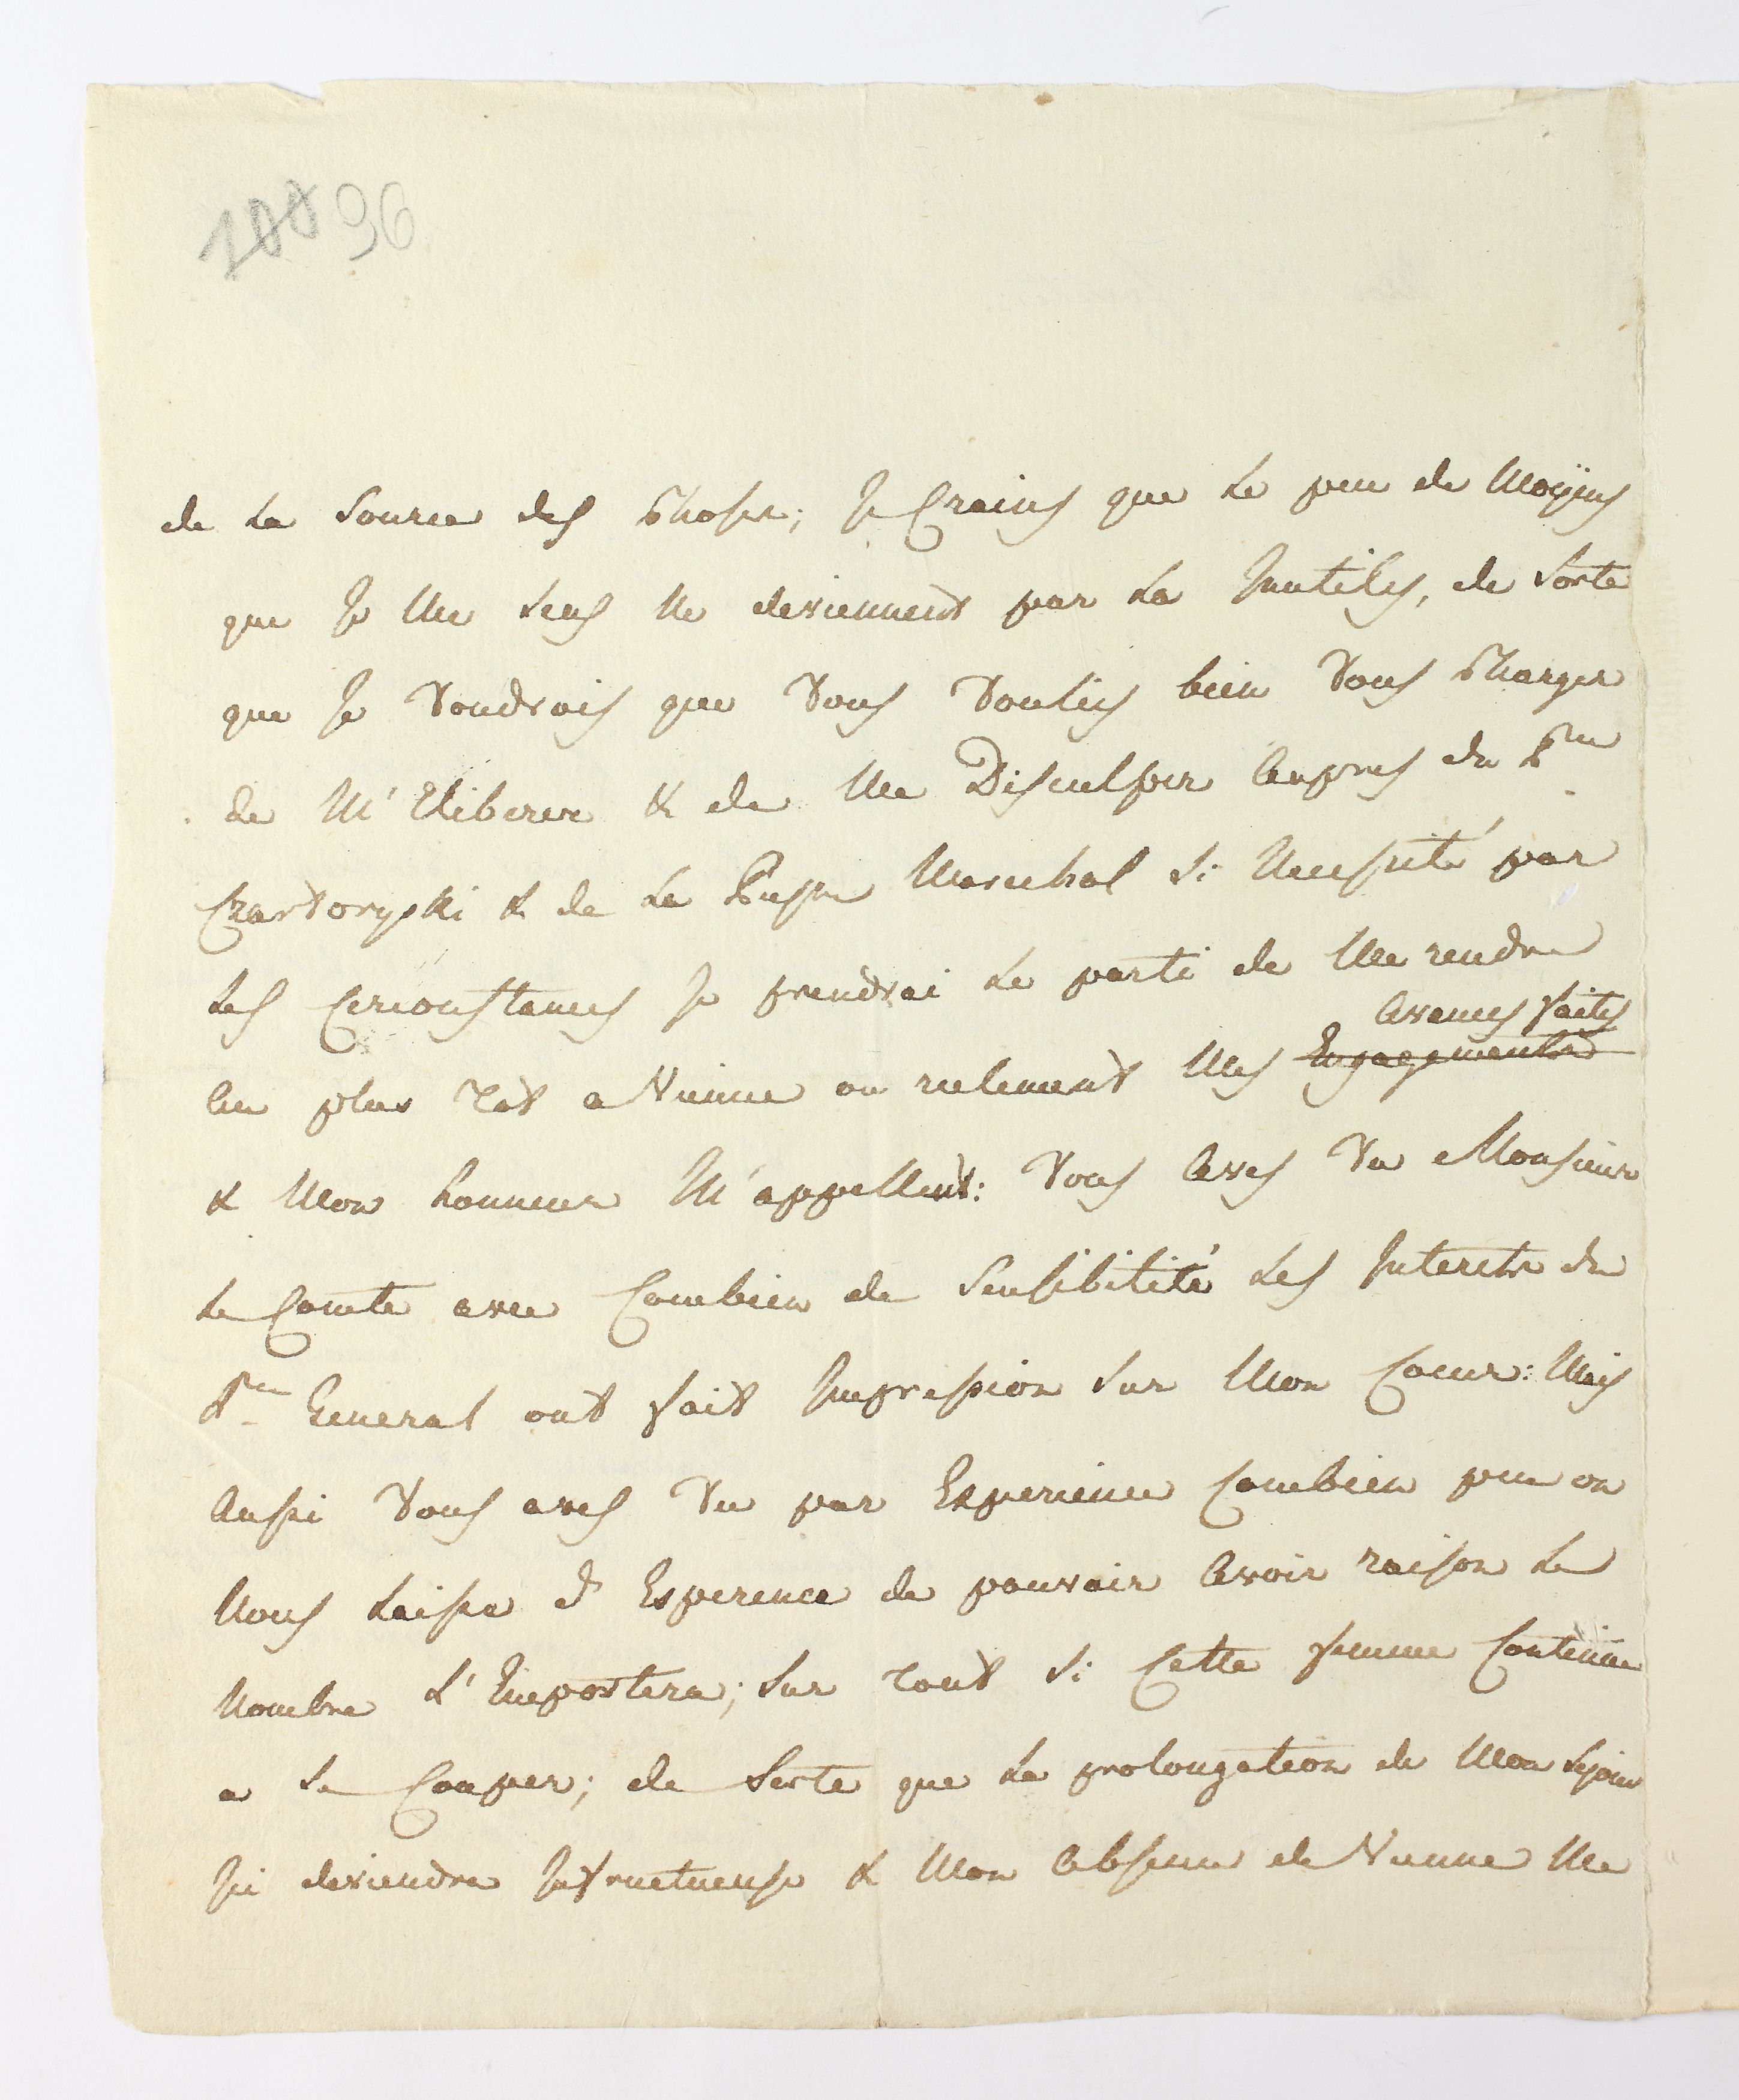 100 96
de La Source des Choses; Je Crains que Le peu de Moÿens
que Je Me Sens Ne deviennent par La Inutiles, de Sorte
que Je Voudrois que Vous Vouliés bien Vous Charger
de M'Eliberer & de Me Disculper Aupres du P.ce
Czartoryski & de La Pssse Marechal Si Necessité par
Les Circonstances Je prendrai Le parti de Me rendre
Avances faites
Au plus Tot a Vienne ou reelement Mes Engagements
& Mon honneur M'appellent: Vous Avés Vu Monsieur
Le Comte avec Combien de Sensibilité Les Interets du
P.ce General ont fait Impression Sur Mon Coeur: Mais
Aussi Vous avés Vu par Experience Combien peu on
Nous Laisse d'Esperence de pouvoir Avoir raison de
Nombre d'Impostera; Sur Tout Si Cette femme Continue
a Se Couper; de Sorte que La prolongation de Mon Sejour
Ici deviendra Infructueuse & Mon Absence de Vienne Me